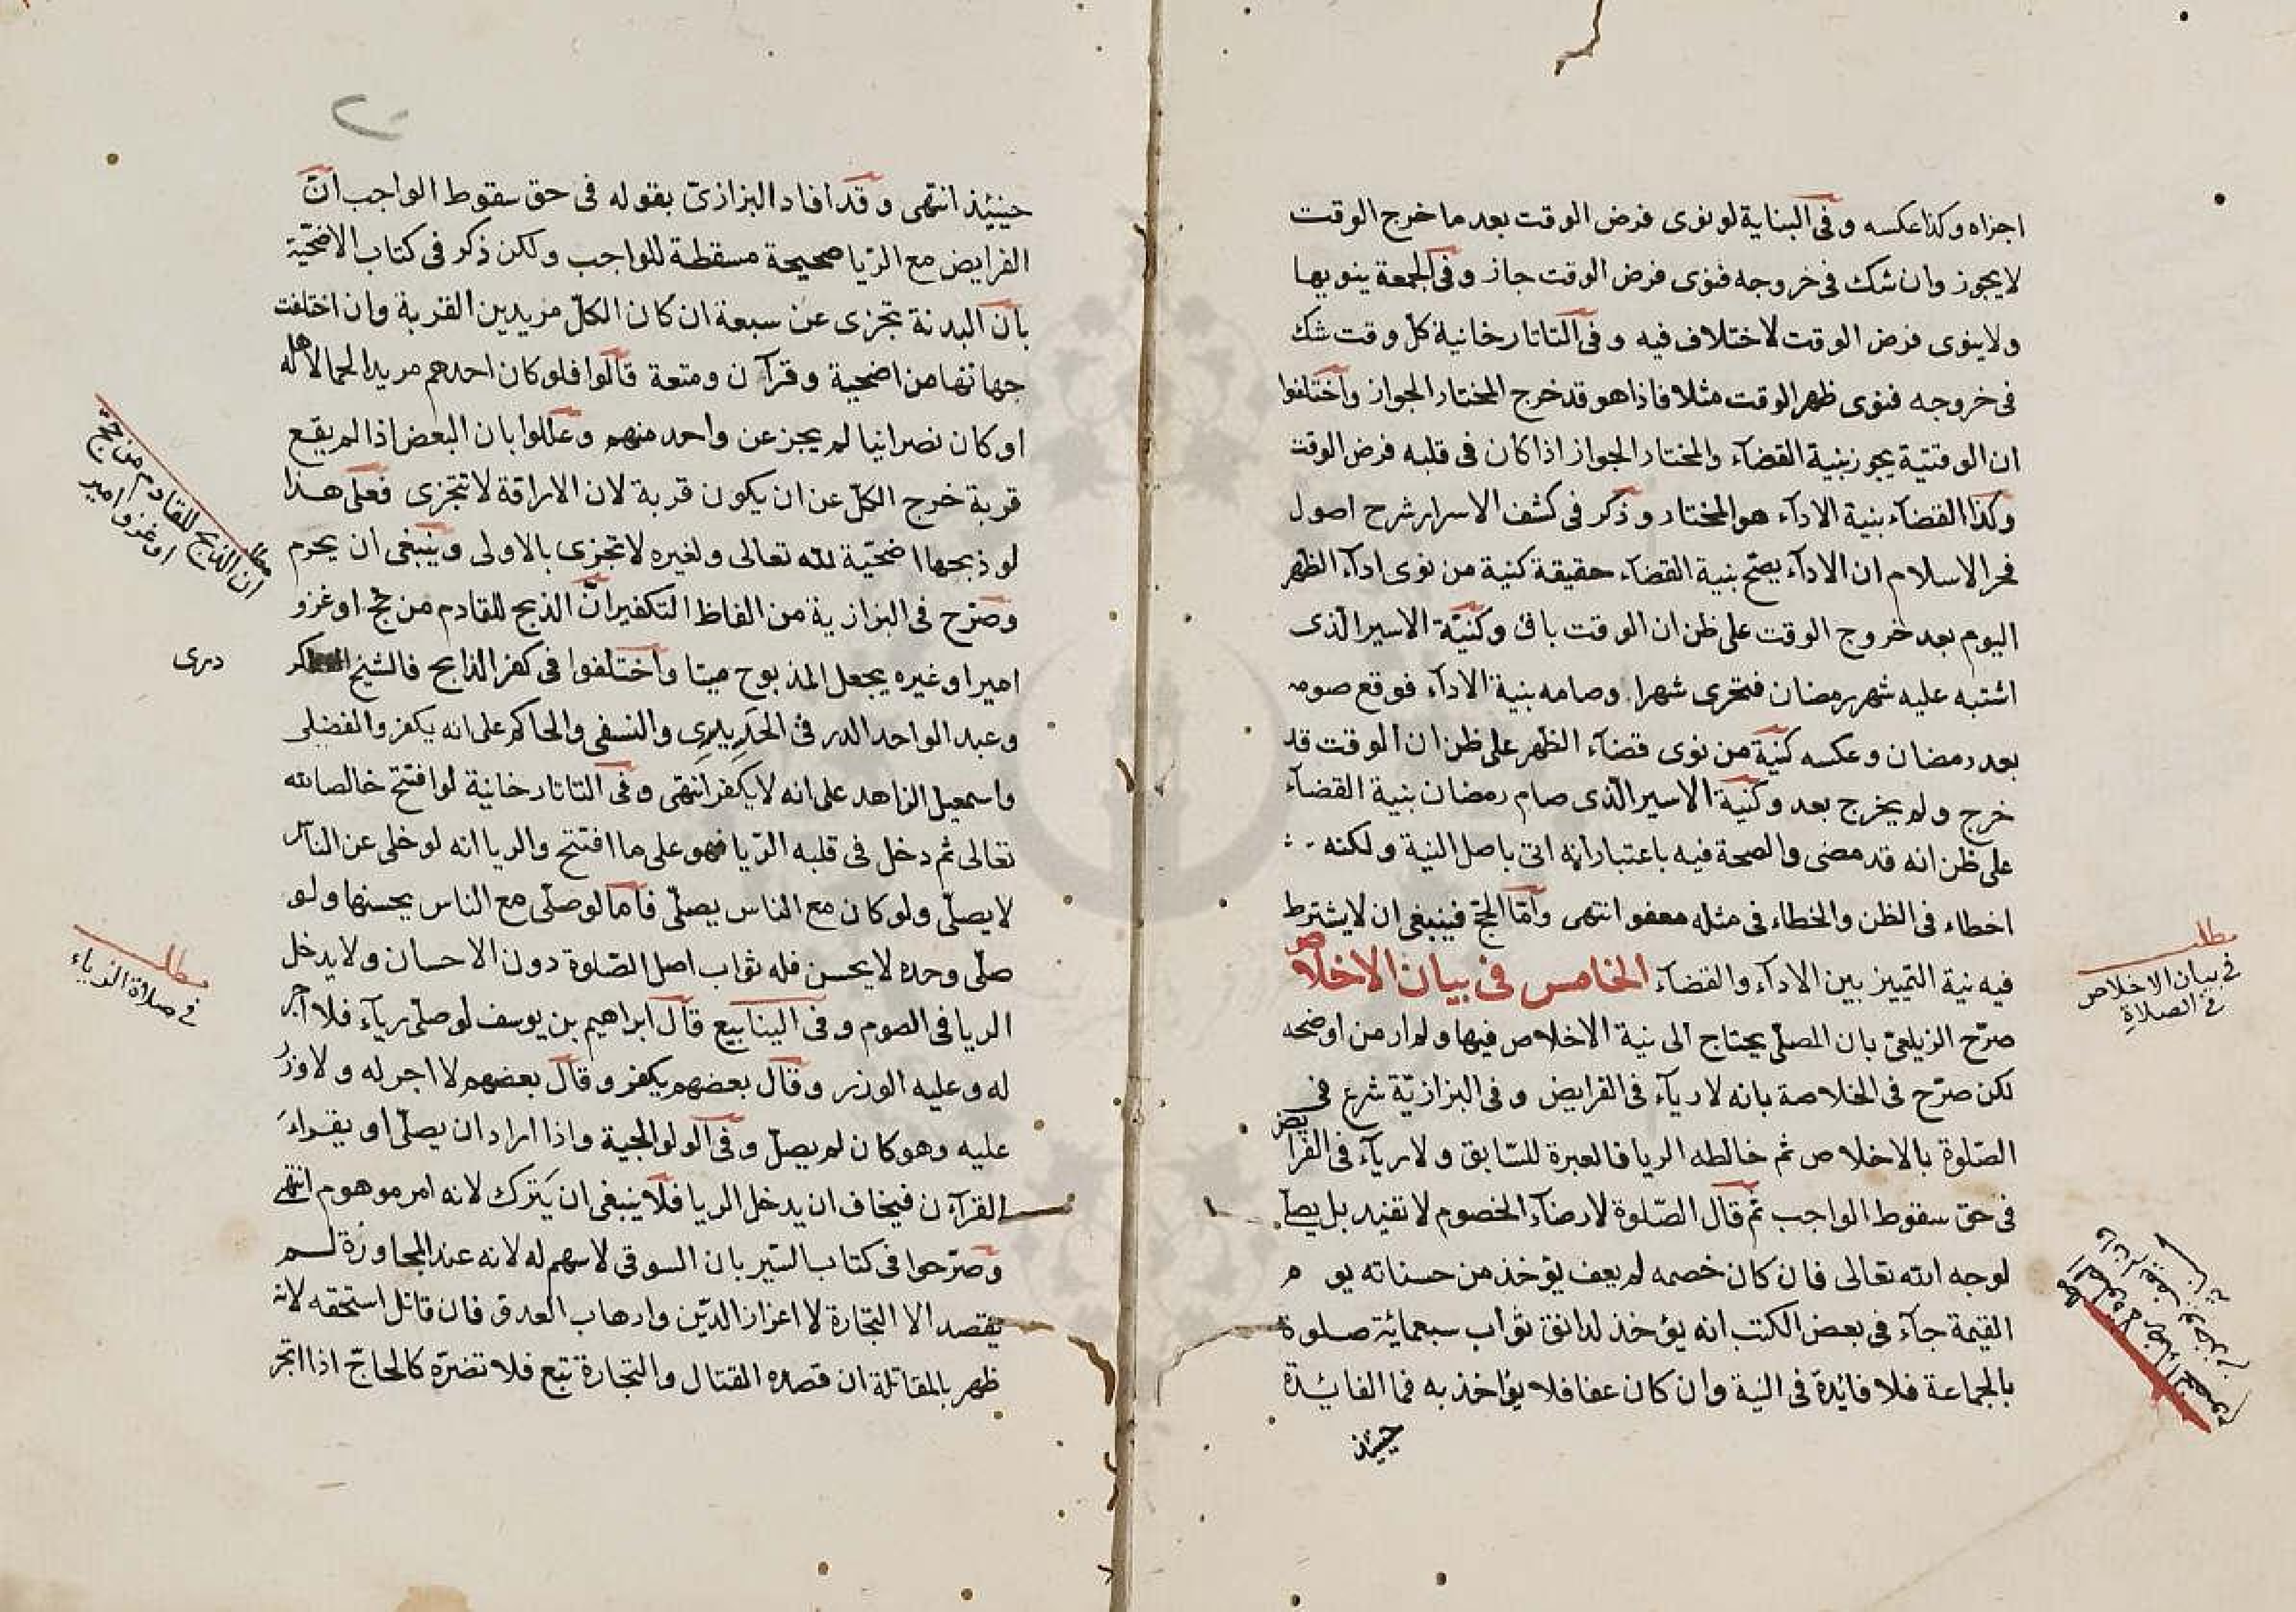 اجزاه وكذا عكسه وفى البناية لو نوى فرض الوقت بعد ما خرج الوقت
لا يجوز وان شك فى خروجه فنوى فرض الوقت جاز وفى الجمعة ينويها
ولا ينوى فرض الوقت لاختلاف فيه وفى التاتارخانية كل وقت شك
فى خروجه فنوى ظهر الوقت مثلا فاذا هو قد خرج المختار الجواز واختلفوا
ان الوقتية يجوز بنية القضآء والمختار الجواز اذا كان فى قلبه فرض الوقت
وكذا القضآء بنية الادآء هو المختار وذكر فى كشف الاسرار شرح اصول
فخر الاسلام ان الادآء يصح بنية القضآء حقيقة كنية من نوى ادآء الظهر
اليوم بعد خروج الوقت على ظن ان الوقت باق وكنية الاسير الذى
اشتبه عليه شهر رمضان فتحرى شهرا وصامه بنية الادآء فوقع صومه
بعد رمضان وعكسه كنية من نوى قضآء الظهر على ظن ان الوقت قد
خرج ولم يخرج بعد وكنية الاسير الذى صام رمضان بنية القضآء
على ظن انه قد مضى والصحة فيه باعتبار انه اتى باصل النية ولكنه
اخطاء فى الظن والخطاء فى مثله معفو انتهى وأما الحج فينبغى ان لا يشترط
فيه نية التمييز بين الادآء والقضآء الخامس فى بيان الاخلاص
صرح الزيلعى بان المصلى يحتاج الى نية الاخلاص فيها ولم ار من اوضحه
لكن صرح فى الخلاصة بانه لا ريآء فى الفرايض وفى البزازية شرع فى
الصلوة بالاخلاص ثم خالطه الريا فالعبرة للسابق ولا ريآء فى الفرايض
فى حق سقوط الواجب ثم قال الصلوة لارضآء الخصوم لا تفيد بل يصلى
لوجه الله تعالى فان كان خصمه لم يعف يؤخذ من حسناته يوم
القيمة جآء فى بعض الكتب انه يؤخذ لدانق ثواب سبعمائة صلوة
بالجماعة فلا فائدة فى النية وان كان عفا فلا يؤاخذ به فما الفائدة
حينئذ
مطلب
فى بيان الاخلاص
فى الصلاة
حينئذ انتهى وقد افاد البزازى بقوله فى حق سقوط الواجب ان
الفرايض مع الريا صحيحة مسقطة للواجب ولكن ذكر فى كتاب الاضحية
بأن البدنة تجزى عن سبعة ان كان الكل مريدين القربة وان اختلفت
جهاتها من اضحية وقرآن ومتعة قالوا فلو كان احدهم مريدا لحما لاهله
او كان نصرانيا لم يجز عن واحد منهم وعللوا بان البعض اذا لم يقع
قربة خرج الكل عن ان يكون قربة لان الاراقة لا تتجزى فعلى هذا
لو ذبحها اضحية لله تعالى ولغيره لا تجزى بالاولى وينبغى ان يحرم
وصرح فى البزازية من الفاظ التكفير ان الذبح للقادم من حج او غزو
امير او غيره يجعل المذبوح ميتا واختلفوا فى كفر الذابح فالشيخ
وعبد الواحد الدرقى الحديدى والنسفى والحاكم على انه يكفر والفضيلى
واسمعيل الزاهد على انه لا يكفر انتهى وفى التاتارخانية لو افتتح خالصا لله
تعالى ثم دخل فى قلبه الريا فهو على ما افتتح والريا انه لو خلى عن الناس
لا يصلى ولو كان مع الناس يصلى فأما لو صلى مع الناس يحسنها ولو
صلى وحده لا يحسن فله ثواب اصل الصلوة دون الاحسان ولا يدخل
الريا فى الصوم وفى الينابيع قال ابراهيم بن يوسف لو صلى ريآء فلا اجر
له وعليه الوزر وقال بعضهم يكفر وقال بعضهم لا اجر له ولا وزر
عليه وهو كان لم يصل وفى الولوالجية واذا اراد ان يصلى او يقراء
القرآن فيخاف ان يدخل الريا فلا ينبغى ان يترك لانه امر موهوم انتهى
وصرحوا فى كتاب السير بان السوقى لا سهم له لانه عند المجاوزة لم
يقصد الا التجارة لا اعزاز الدين وارهاب العدو فان قاتل استحقه لانه
ظهر بالمقاتلة ان قصده القتال والتجارة تبع فلا تضره كالحاج اذا اتجر
مطلب
ان الذبح للقادم من حج
او غزو امير
مطلب
فى صلاة الرياء